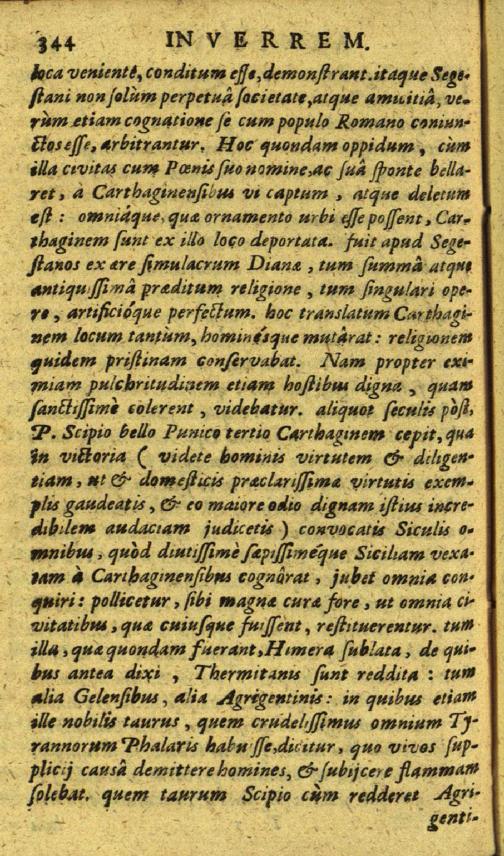 344 IN VERREM.
loca veniente, conditum eſſe, demonſtrant. itaque Sege-
ſtani non ſolùm perpetuâ ſocietate, atque amicitiâ, ve-
rùm etiam cognatione ſe cum populo Romano coniun-
ctos eſſe, arbitrantur. Hoc quondam oppidum, cùm
illa civitas cum Pœnis ſuo nomine, ac ſuâ ſponte bella-
ret, à Carthaginenſibus vi captum, atque deletum
eſt: omniáque, quæ ornamento urbi eſſe poſſent, Car-
thaginem ſunt ex illo loco deportata. fuit apud Sege-
ſtanos ex ære ſimulacrum Dianæ, tum ſummâ atque
antiquiſſimâ præditum religione, tum ſingulari ope-
re, artificióque perfectum. hoc translatum Carthagi-
nem locum tantùm, hominéſque mutârat: religionem
quidem priſtinam conſervabat. Nam propter exi-
miam pulchritudinem etiam hoſtibus digna, quam
ſanctiſſimè colerent, videbatur. aliquot ſeculis pòſt,
P. Scipio bello Punico tertio Carthaginem cepit, qua
in victoria ( videte hominis virtutem & diligen-
tiam, ut & domeſticis præclariſſimæ virtutis exem-
plis gaudeatis, & eo maiore odio dignam iſtius incre-
dibilem audaciam judicetis ) convocatis Siculis o-
mnibus, quòd diutiſſimè ſæpiſſiméque Siciliam vexa-
tam à Carthaginenſibus cognôrat, jubet omnia con-
quiri: pollicetur, ſibi magnæ curæ fore, ut omnia ci-
vitatibus, quæ cuiuſque fuiſſent, reſtituerentur. tum
illa, quæ quondam fuerant, Himera ſublata, de qui-
bus antea dixi, Thermitanis ſunt reddita: tum
alia Gelenſibus, alia Agrigentinis: in quibus etiam
ille nobilis taurus, quem crudeliſſimus omnium Ty-
rannorum Phalaris habuiſſe, dicitur, quo vivos ſup-
plicij cauſâ demittere homines, & ſubijcere flammam
ſolebat. quem taurum Scipio cùm redderet Agri-
genti-